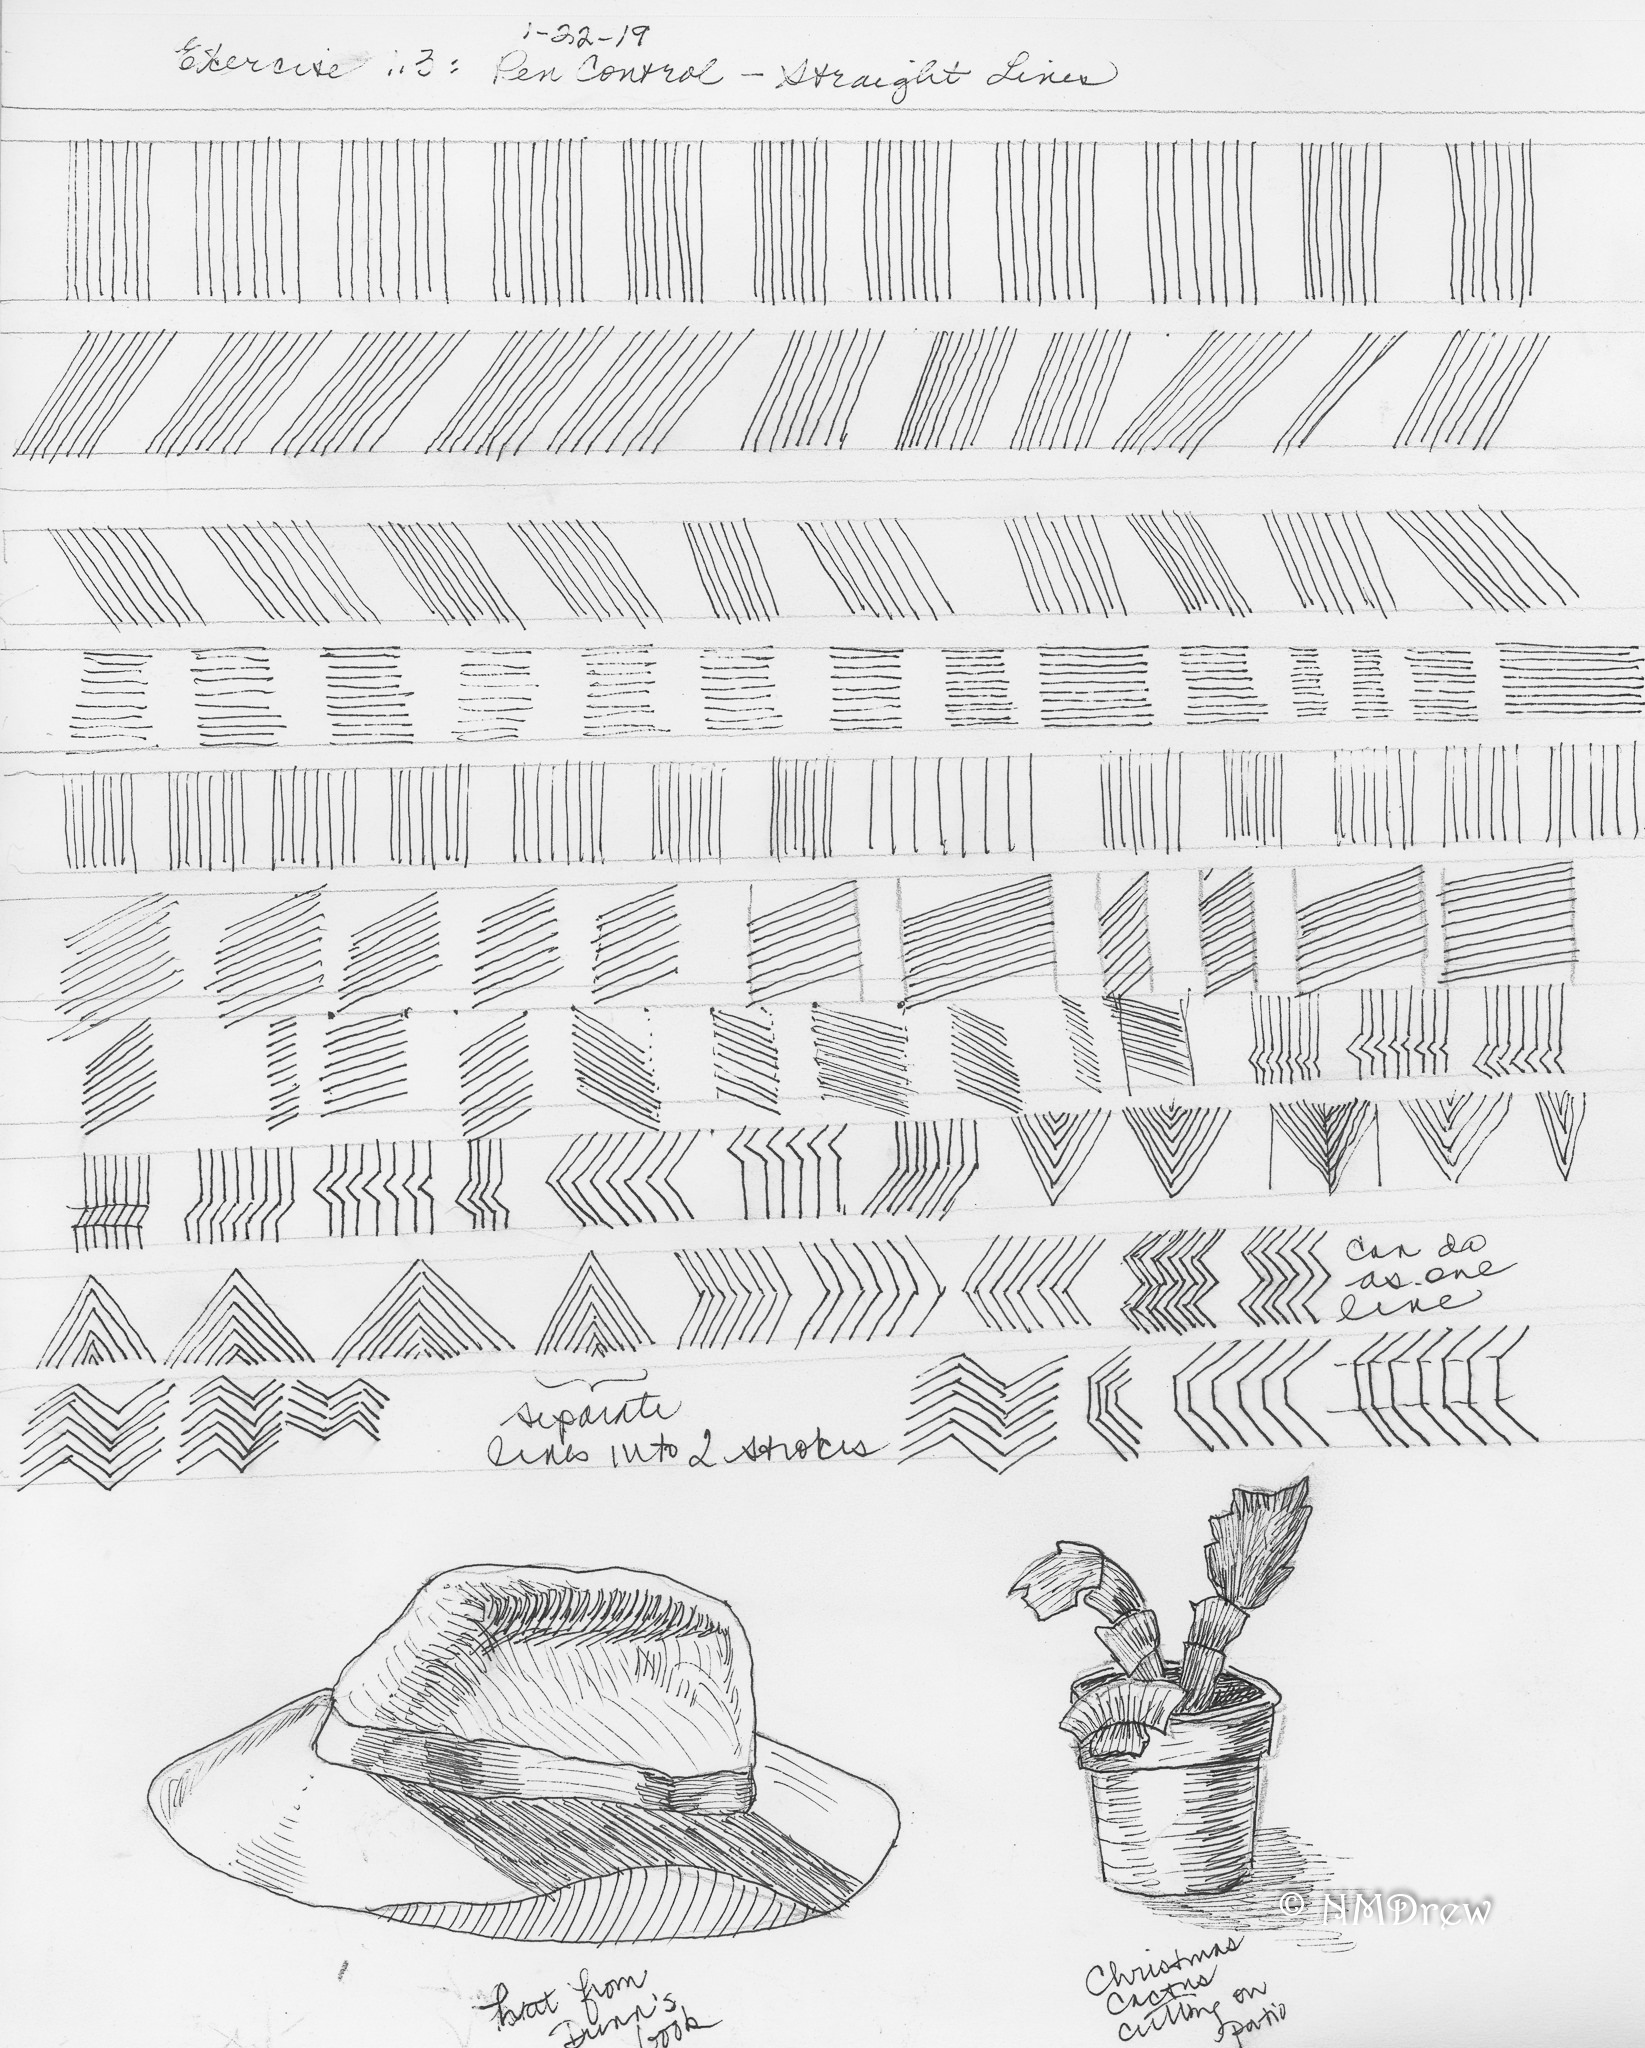 1-22-19
Exercise 1.3: Pen Control - Straight Lines
can do
as one
line
separate
lines into 2 strokes
© NMDrew
hat from
Dunn's
book
Christmas
Cactus
cutting on
patio